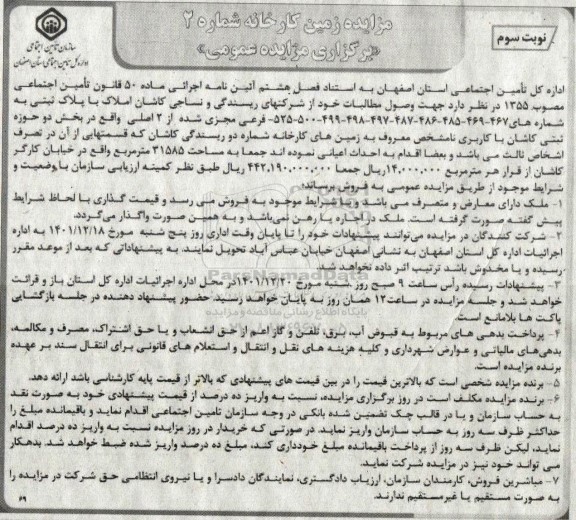 مزایده زمین کارخانه شماره ۲
«برگزاری مزایده عمومی»
نوبت سوم
سازمان تامین اجتماعی
اداره کل تامین اجتماعی استان اصفهان
اداره کل تأمین اجتماعی استان اصفهان به استناد فصل هشتم آئین نامه اجرائی ماده ۵۰ قانون تأمین اجتماعی
مصوب ۱۳۵۵ در نظر دارد جهت وصول مطالبات خود از شرکتهای ریسندگی و نساجی کاشان املاک با پلاک ثبتی به
شماره های ۴۶۷-۴۶۹-۴۸۵-۴۸۶-۴۸۷-۴۹۷-۴۹۸-۴۹۹-۵۰۰-۵۲۵ فرعی مجزی شده از ۲ اصلی واقع در بخش دو حوزه
ثبتی کاشان با کاربری نامشخص معروف به زمین های کارخانه شماره دو ریسندگی کاشان که قسمتهایی از آن در تصرف
اشخاص ثالث می باشد و بعضا اقدام به احداث اعیانی نموده اند جمعا به مساحت ۳۱۵۸۵ مترمربع واقع در خیابان کارگر
کاشان از قرار هر مترمربع ۱۴,۰۰۰,۰۰۰ ریال جمعا ۴۴۲,۱۹۰,۰۰۰,۰۰۰ ریال طبق نظر کمیته ارزیابی سازمان با وضعیت و
شرایط موجود از طریق مزایده عمومی به فروش برساند؛
۱- ملک دارای معارض و متصرف می باشد و با شرایط موجود به فروش می رسد و قیمت گذاری با لحاظ شرایط
پیش گفته صورت گرفته است. ملک در اجاره یا رهن نمی‌باشد و به همین صورت واگذار می‌گردد.
۲- شرکت کنندگان در مزایده می‌توانند پیشنهادات خود را تا پایان وقت اداری روز پنج شنبه مورخ ۱۴۰۱/۱۲/۱۸ به اداره
اجرائیات اداره کل استان اصفهان به نشانی اصفهان خیابان عباس آباد تحویل نمایند، به پیشنهاداتی که بعد از موعد مقرر
رسیده و یا مخدوش باشد ترتیب اثر داده نخواهد شد.
۳- پیشنهادات رسیده رأس ساعت ۹ صبح روز شنبه مورخ ۱۴۰۱/۱۲/۲۰ در محل اداره اجرائیات اداره کل استان باز و قرائت
خواهد شد و جلسه مزایده در ساعت ۱۲ همان روز به پایان خواهد رسید. حضور پیشنهاد دهنده در جلسه بازگشایی
پاکت ها بلامانع است.
۴- پرداخت بدهی های مربوط به قبوض آب، برق، تلفن و گاز اعم از حق انشعاب و یا حق اشتراک، مصرف و مکالمه،
بدهی‌های مالیاتی و عوارض شهرداری و کلیه هزینه های نقل و انتقال و استعلام های قانونی برای انتقال سند بر عهده
برنده مزایده است.
۵- برنده مزایده شخصی است که بالاترین قیمت را در بین قیمت های پیشنهادی که بالاتر از قیمت پایه کارشناسی باشد ارائه دهد.
۶- برنده مزایده مکلف است در روز برگزاری مزایده، نسبت به واریز ده درصد از قیمت پیشنهادی خود به صورت نقد
به حساب سازمان و یا در قالب چک تضمین شده بانکی در وجه سازمان تامین اجتماعی اقدام نماید و باقیمانده مبلغ را
حداکثر ظرف سه روز به حساب سازمان واریز نماید. در صورتی که خریدار در روز مزایده نسبت به واریز ده درصد اقدام
نماید، لیکن ظرف سه روز از پرداخت باقیمانده مبلغ خودداری کند، مبلغ ده درصد واریز شده ضبط خواهد شد. بدهکار
می تواند خود نیز در مزایده شرکت نماید.
۷- مباشرین فروش، کارمندان سازمان، ارزیاب دادگستری، نمایندگان دادسرا و یا نیروی انتظامی حق شرکت در مزایده را
به صورت مستقیم یا غیرمستقیم ندارند.
۶۹
ParsNamadData
پایگاه اطلاع رسانی مناقصه و مزایده